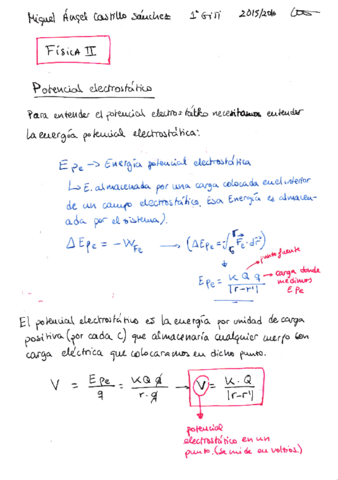 Miguel Ángel Castillo Sánchez 1º GITI 2015/2016
FÍSICA II
Potencial electrostático
Para entender el potencial electrostático necesitamos entender
la energía potencial electrostática:
Epe → Energía potencial electrostática
↳ E. almacenada por una carga colocada en el interior
de un campo electrostático. Esa Energía es almacen-
ada por el sistema).
ΔEpe = -WFe → (ΔEpe = √Fe·dr)
punto fuente
Epe = K Q q / |r-r'|
carga donde
medimos
Epe
El potencial electrostático es la energía por unidad de carga
positiva (por cada C) que almacenaría cualquier cuerpo con
carga eléctrica que colocaramos en dicho punto.
V = Epe / q = K Q q / r · q → V = K · Q / |r-r'|
potencial
electrostático en un
punto. (Se mide en voltios)